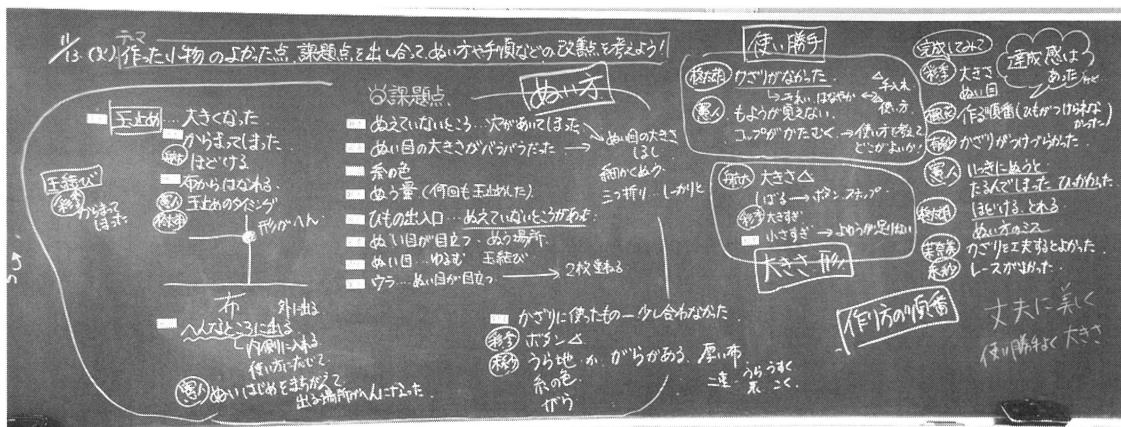 11/13.(火)
テーマ
作った小物のよかった点、課題点を出し合ってぬい方や手順などの改善点を考えよう!
玉止め…大きくなった
からまってしまった
ほどける
布からはなれる
玉止めのタイミング
形がへん
玉結び
彩季 からまって
しまった
布
外に出る
へんなところに出る
内側に入れる
使い方に応じて
ぬいはじめをまちがえて
出る場所がへんになった
課題点
ぬい方
ぬえていないところ…穴があいてしまった
ぬい目の大きさがバラバラだった
糸の色
ぬう量(何回も玉止めした)
ひもの出入口…ぬえていないところがあった
ぬい目が目立つ・ぬう場所
ぬい目…ゆるむ 玉結び
ウラ…ぬい目が目立つ → 2枚重ねる
ぬい目の大きさ
しるし
細かくぬう
三つ折り…しっかりと
かざりに使ったもの―少し合わなかった
彩季 ボタン△
うら地 か がらがある 厚い布
糸の色
がら
二重
うら うすく
表 こく
使い勝手
かざりがなかった
きれい はなやか ↔ 手入れ
使い方
もようが見えない
コップがかたむく → 使い方を考えて
どこがよいか!
大きさ△
ばる → ボタン、スナップ
彩季 大きすぎ
小さすぎ → よゆうが足りない
大きさ 形
完成してみて
達成感は
あったけど
彩季 大きさ
ぬい目
作る順番(ひもがつけられな
かった)
かざりがつけづらかった
いっきにぬうと
たるんでしまった ひっかかった
ほどける、とれる
ぬい方のミス
かざりを工夫するとよかった
レースがよかった
作り方の順番
丈夫に 美しく
使い勝手よく 大きさ